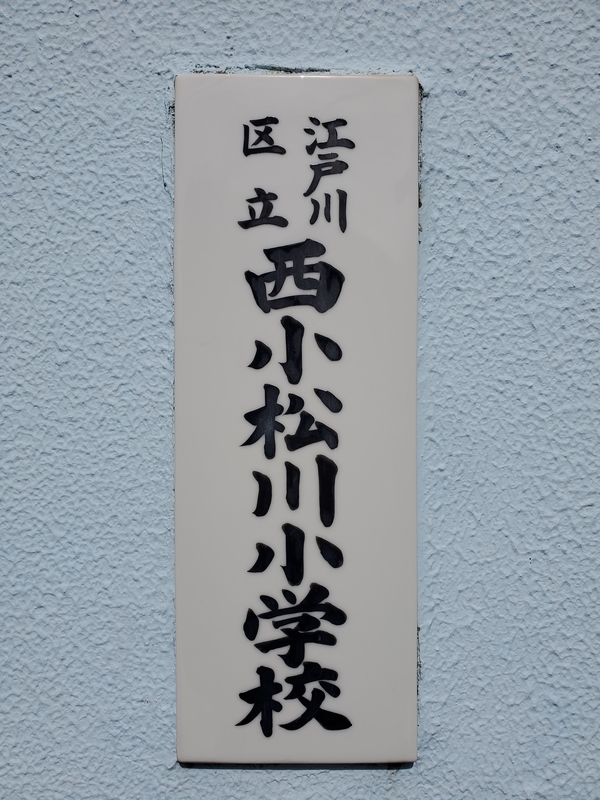 江戸川
区立
西小松川小学校